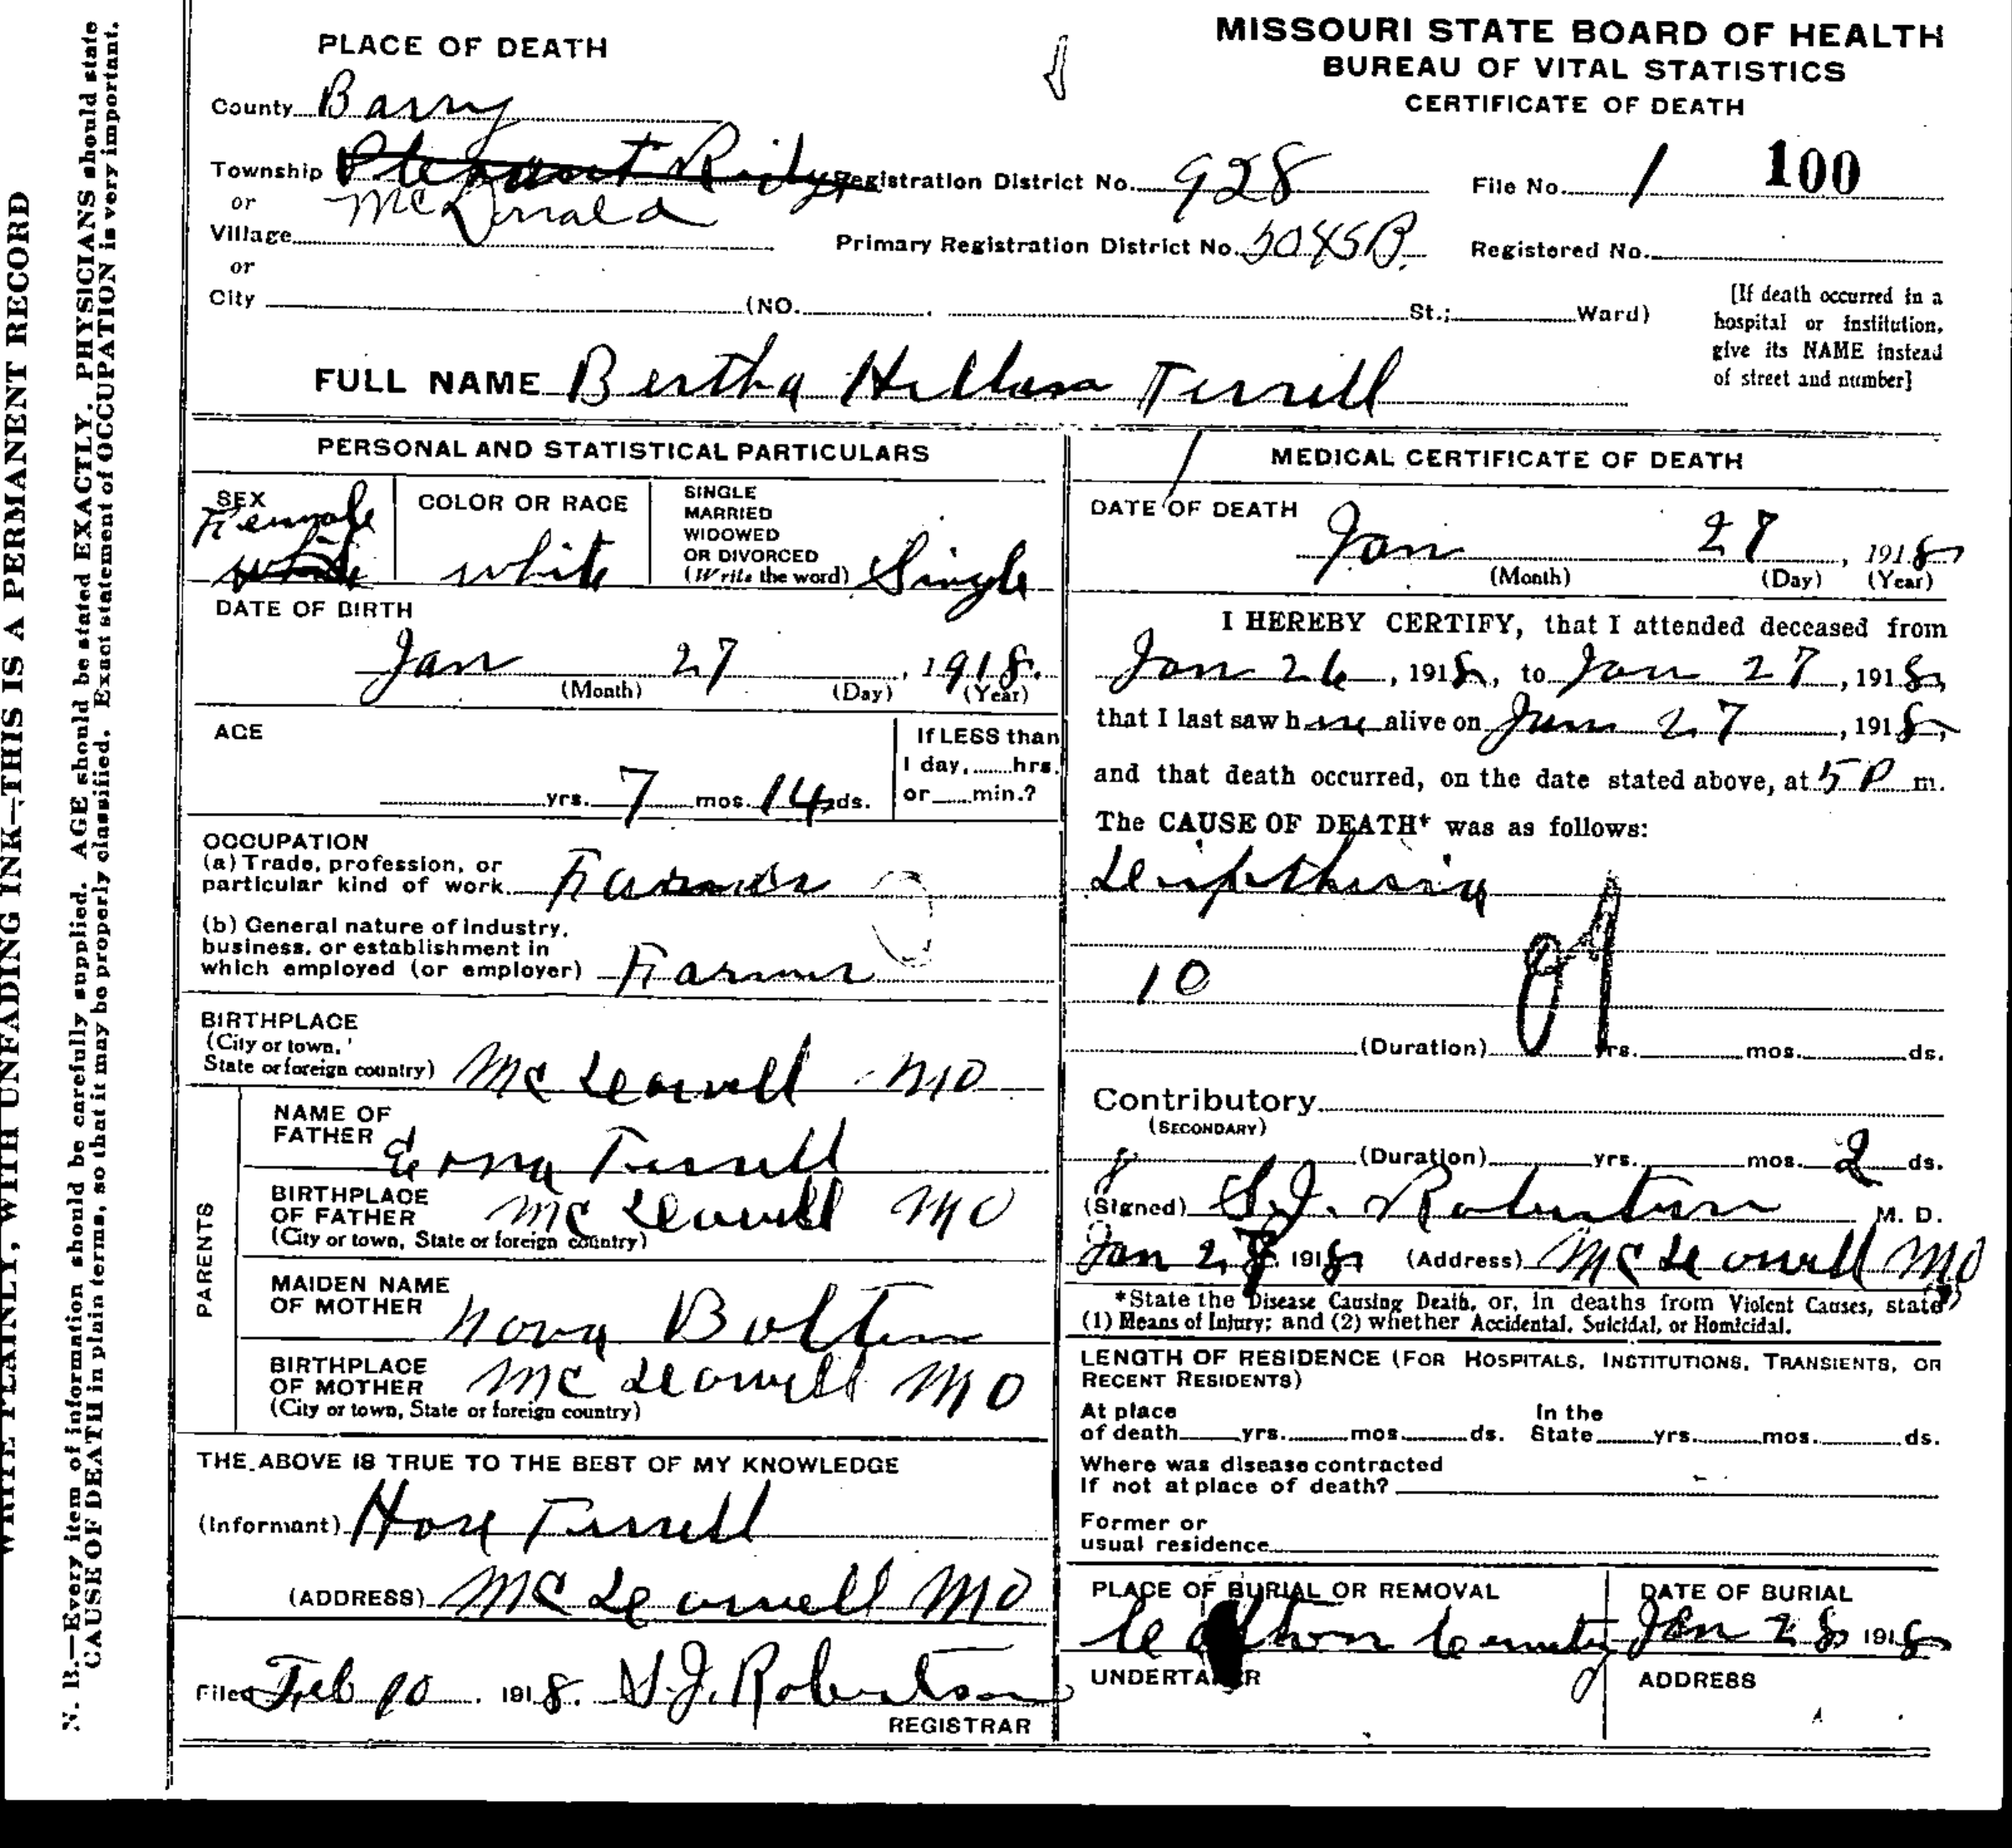 WRITE PLAINLY, WITH UNFADING INK—THIS IS A PERMANENT RECORD
N. B.—Every item of information should be carefully supplied. AGE should be stated EXACTLY. PHYSICIANS should state
CAUSE OF DEATH in plain terms, so that it may be properly classified. Exact statement of OCCUPATION is very important.
MISSOURI STATE BOARD OF HEALTH
BUREAU OF VITAL STATISTICS
CERTIFICATE OF DEATH
PLACE OF DEATH
County Barry
Township Pleasant Ridge Registration District No. 928 File No. 1 100
or McDonald
Village Primary Registration District No. 5045B. Registered No.
or
City (NO. St.; Ward)
[If death occurred in a
hospital or institution,
give its NAME instead
of street and number]
FULL NAME Bertha Terrell
PERSONAL AND STATISTICAL PARTICULARS
SEX Female white
COLOR OR RACE white
SINGLE
MARRIED
WIDOWED
OR DIVORCED
(Write the word) Single
DATE OF BIRTH
Jan 27, 1918.
(Month) (Day) (Year)
AGE
yrs. 7 mos. 14 ds.
If LESS than
1 day, hrs.
or min.?
OCCUPATION
(a) Trade, profession, or
particular kind of work Farmer
(b) General nature of industry,
business, or establishment in
which employed (or employer) Farmer
BIRTHPLACE
(City or town,
State or foreign country) Mc Dowell MO
PARENTS
NAME OF
FATHER Terrell
BIRTHPLACE
OF FATHER Mc Dowell MO
(City or town, State or foreign country)
MAIDEN NAME
OF MOTHER Nora Bolten
BIRTHPLACE
OF MOTHER Mc Dowell MO
(City or town, State or foreign country)
THE ABOVE IS TRUE TO THE BEST OF MY KNOWLEDGE
(Informant) Terrell
(ADDRESS) Mc Dowell MO
Filed Feb 10, 1918. S.J. Robertson
REGISTRAR
MEDICAL CERTIFICATE OF DEATH
DATE OF DEATH
Jan 27, 1918
(Month) (Day) (Year)
I HEREBY CERTIFY, that I attended deceased from
Jan 26, 1918, to Jan 27, 1918,
that I last saw h alive on Jan 27, 1918,
and that death occurred, on the date stated above, at 5 P m.
The CAUSE OF DEATH* was as follows:
Deiptheria
10 09
(Duration) yrs. mos. ds.
Contributory
(SECONDARY)
(Duration) yrs. mos. 2 ds.
(Signed) S.J. Robertson M. D.
Jan 28, 1918 (Address) Mc Dowell MO
*State the Disease Causing Death, or, in deaths from Violent Causes, state
(1) Means of Injury; and (2) whether Accidental, Suicidal, or Homicidal.
LENGTH OF RESIDENCE (FOR HOSPITALS, INSTITUTIONS, TRANSIENTS, OR
RECENT RESIDENTS)
At place In the
of death yrs. mos. ds. State yrs. mos. ds.
Where was disease contracted
if not at place of death?
Former or
usual residence
PLACE OF BURIAL OR REMOVAL
DATE OF BURIAL
Jan 28 1918
UNDERTAKER
ADDRESS